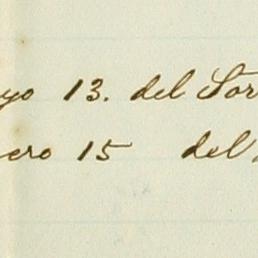 yo 13. del Sor
ero 15 del